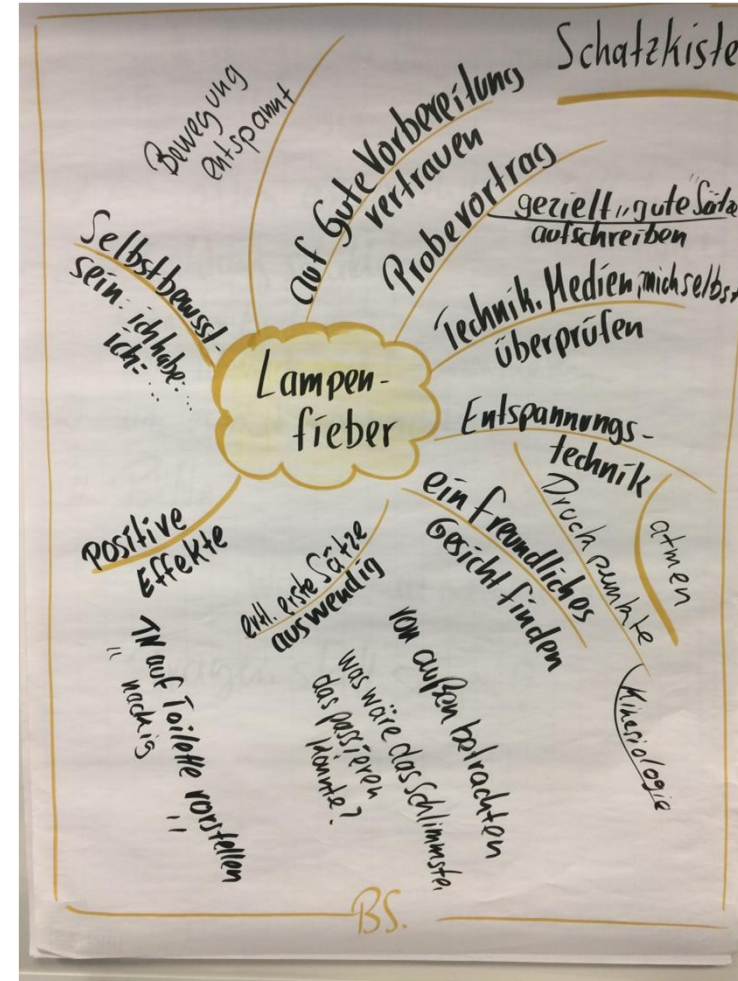 Schatzkiste
Bewegung
entspannt
auf Gute Vorbereitung
vertrauen
Probevortrag
gezielt "gute" Sätze
aufschreiben
Technik, Medien, mich selbst
überprüfen
Entspannungs-
technik
atmen
Druckpunkte
Kinesiologie
ein freundliches
Gesicht finden
von außen betrachten
was wäre das Schlimmste,
das passieren
könnte?
evtl. erste Sätze
auswendig
Positive
Effekte
TN auf Toilette vorstellen
" nackig "
Selbstbewusst-
sein: ich habe...
ich= ...
Lampen-
fieber
BS.